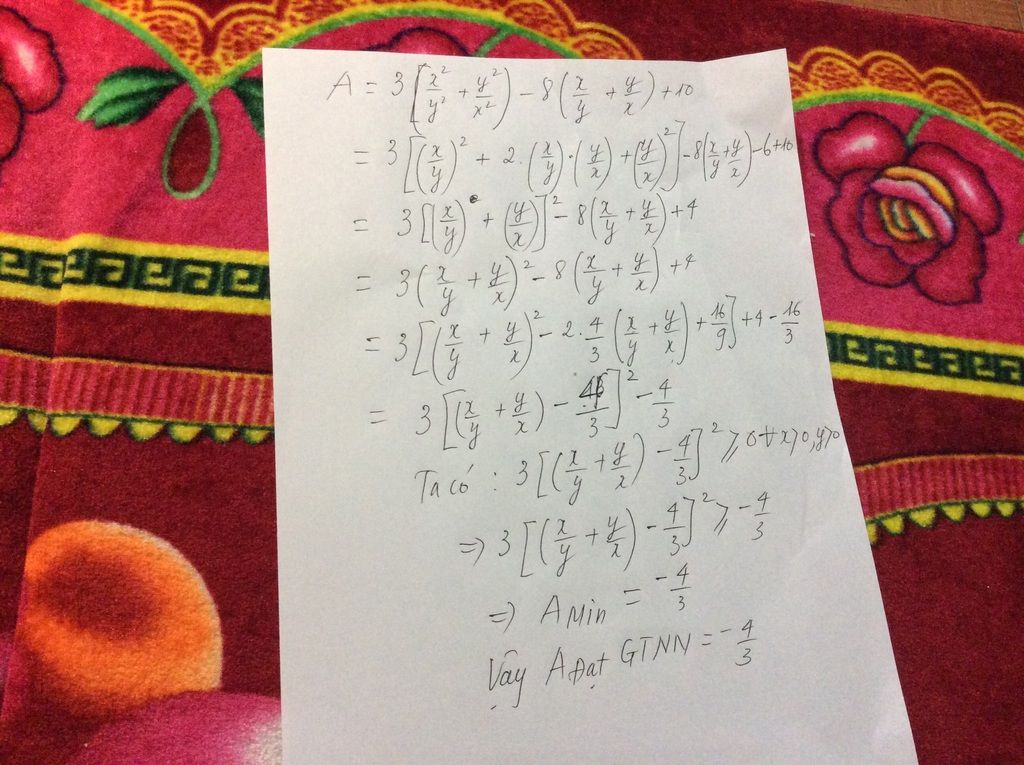 A = 3[x²/y² + y²/x²) - 8(x/y + y/x) + 10
= 3[(x/y)² + 2.(x/y)·(y/x) + (y/x)²] - 8(x/y + y/x) - 6 + 10
= 3[(x/y) + (y/x)]² - 8(x/y + y/x) + 4
= 3(x/y + y/x)² - 8(x/y + y/x) + 4
= 3[(x/y + y/x)² - 2·4/3(x/y + y/x) + 16/9] + 4 - 16/3
= 3[(x/y + y/x) - 4/3]² - 4/3
Ta có : 3[(x/y + y/x) - 4/3]² ⩾ 0 ∀ x>0, y>0
=> 3[(x/y + y/x) - 4/3]² ⩾ -4/3
=> A Min = -4/3
Vậy A Đạt GTNN = -4/3